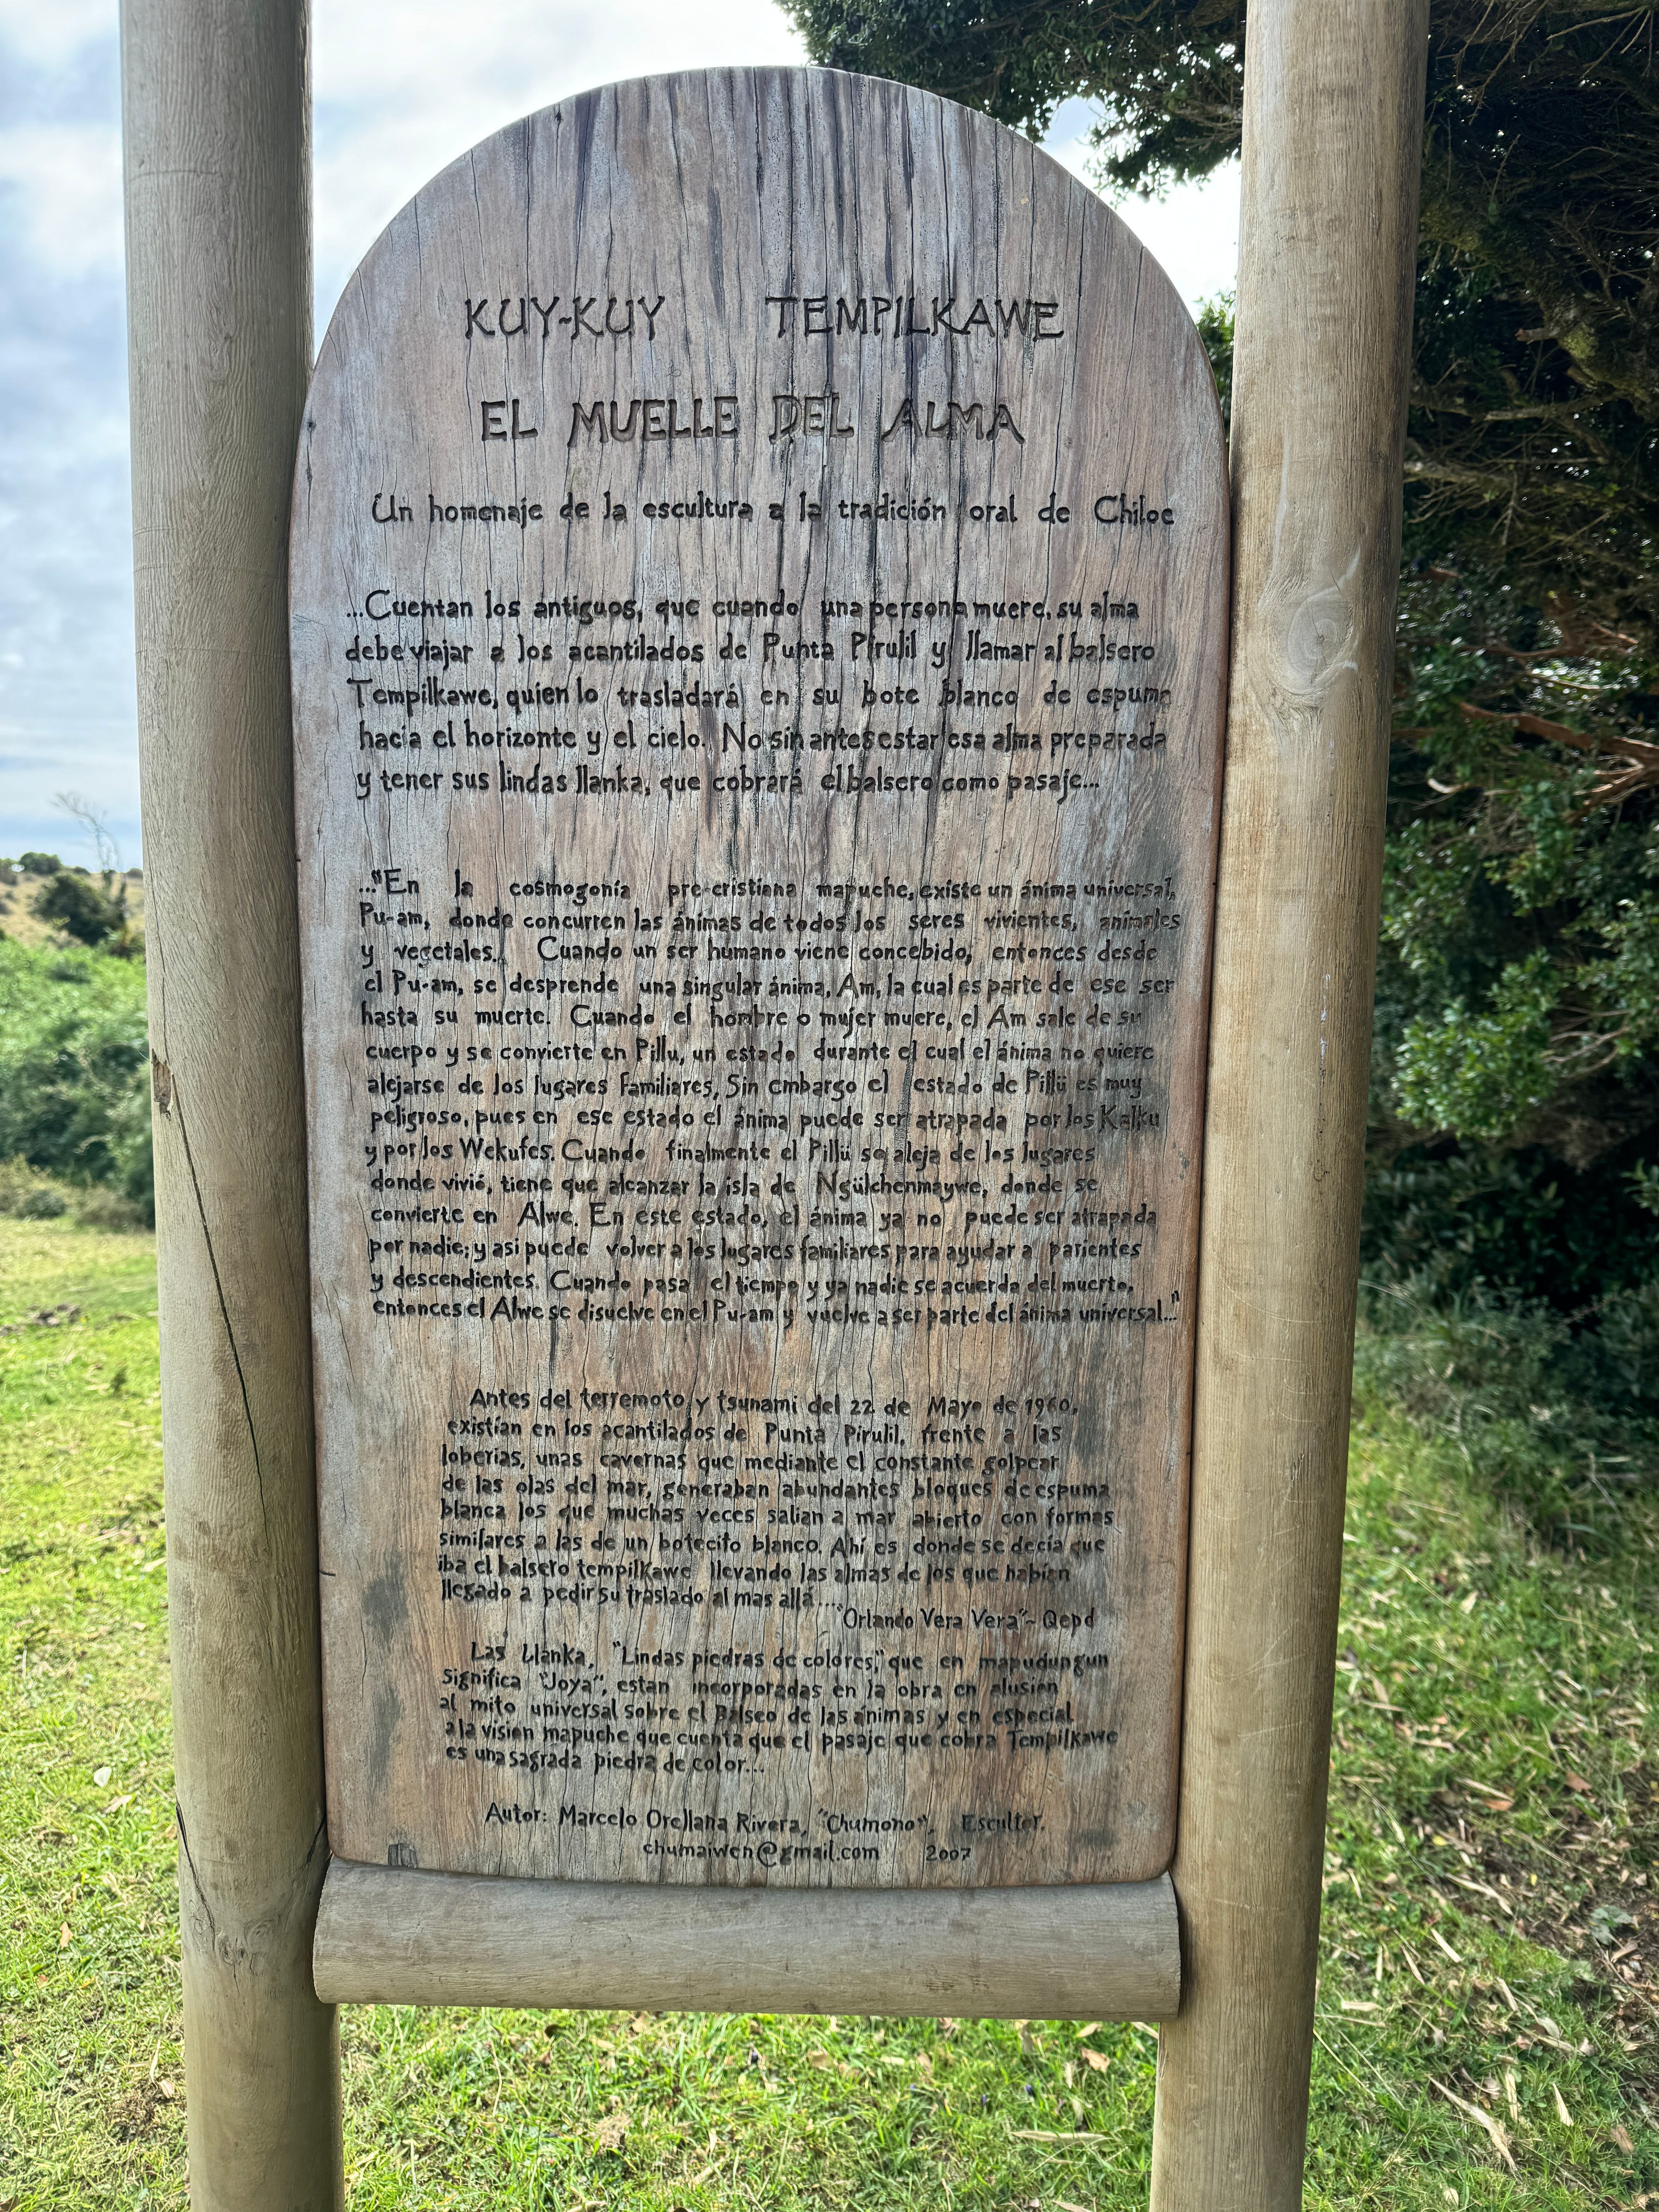 KUY-KUY TEMPILKAWE
EL MUELLE DEL ALMA
Un homenaje de la escultura a la tradición oral de Chiloe
...Cuentan los antiguos, que cuando una persona muere, su alma
debe viajar a los acantilados de Punta Pirulil y llamar al balsero
Tempilkawe, quien lo trasladará en su bote blanco de espuma
hacia el horizonte y el cielo. No sin antes estar esa alma preparada
y tener sus lindas llanka, que cobrará el balsero como pasaje...
..."En la cosmogonía pre-cristiana mapuche, existe un ánima universal,
Pu-am, donde concurren las ánimas de todos los seres vivientes, animales
y vegetales. Cuando un ser humano viene concebido, entonces desde
el Pu-am, se desprende una singular ánima, Am, la cual es parte de ese ser
hasta su muerte. Cuando el hombre o mujer muere, el Am sale de su
cuerpo y se convierte en Pillu, un estado durante el cual el ánima no quiere
alejarse de los lugares familiares, Sin embargo el estado de Pillü es muy
peligroso, pues en ese estado el ánima puede ser atrapada por los Kalku
y por los Wekufes. Cuando finalmente el Pillü se aleja de los lugares
donde vivió, tiene que alcanzar la isla de Ngülchenmaywe, donde se
convierte en Alwe. En este estado, el ánima ya no puede ser atrapada
por nadie; y asi puede volver a los lugares familiares para ayudar a parientes
y descendientes. Cuando pasa el tiempo y ya nadie se acuerda del muerto,
entonces el Alwe se disuelve en el Pu-am y vuelve a ser parte del ánima universal..."
Antes del terremoto y tsunami del 22 de Mayo de 1960,
existían en los acantilados de Punta Pirulil, frente a las
loberias, unas cavernas que mediante el constante golpear
de las olas del mar, generaban abundantes bloques de espuma
blanca los que muchas veces salian a mar abierto con formas
similares a las de un botecito blanco. Ahí es donde se decía que
iba el balsero tempilkawe llevando las almas de los que habían
llegado a pedir su traslado al mas allá....
"Orlando Vera Vera"- Qepd
Las Llanka, "Lindas piedras de colores," que en mapudungun
significa "Joya", estan incorporadas en la obra en alusión
al mito universal sobre el Balseo de las ánimas y en especial
a la vision mapuche que cuenta que el pasaje que cobra Tempilkawe
es una sagrada piedra de color...
Autor: Marcelo Orellana Rivera, "Chumono". Escultor.
chumaiwen@gmail.com 2007